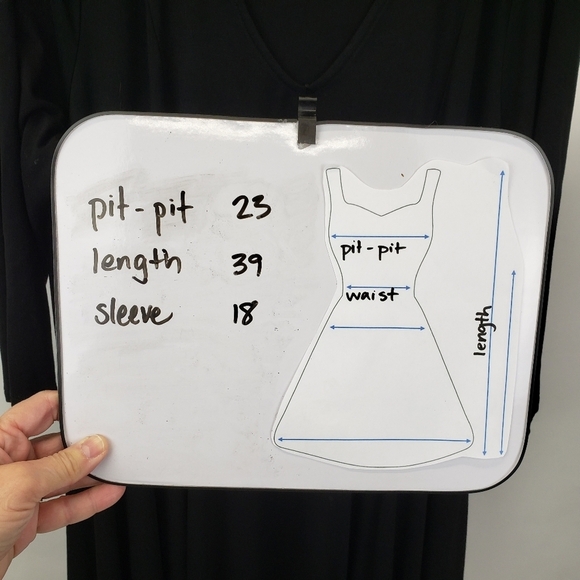 pit-pit 23
length 39
sleeve 18
pit-pit
waist
length